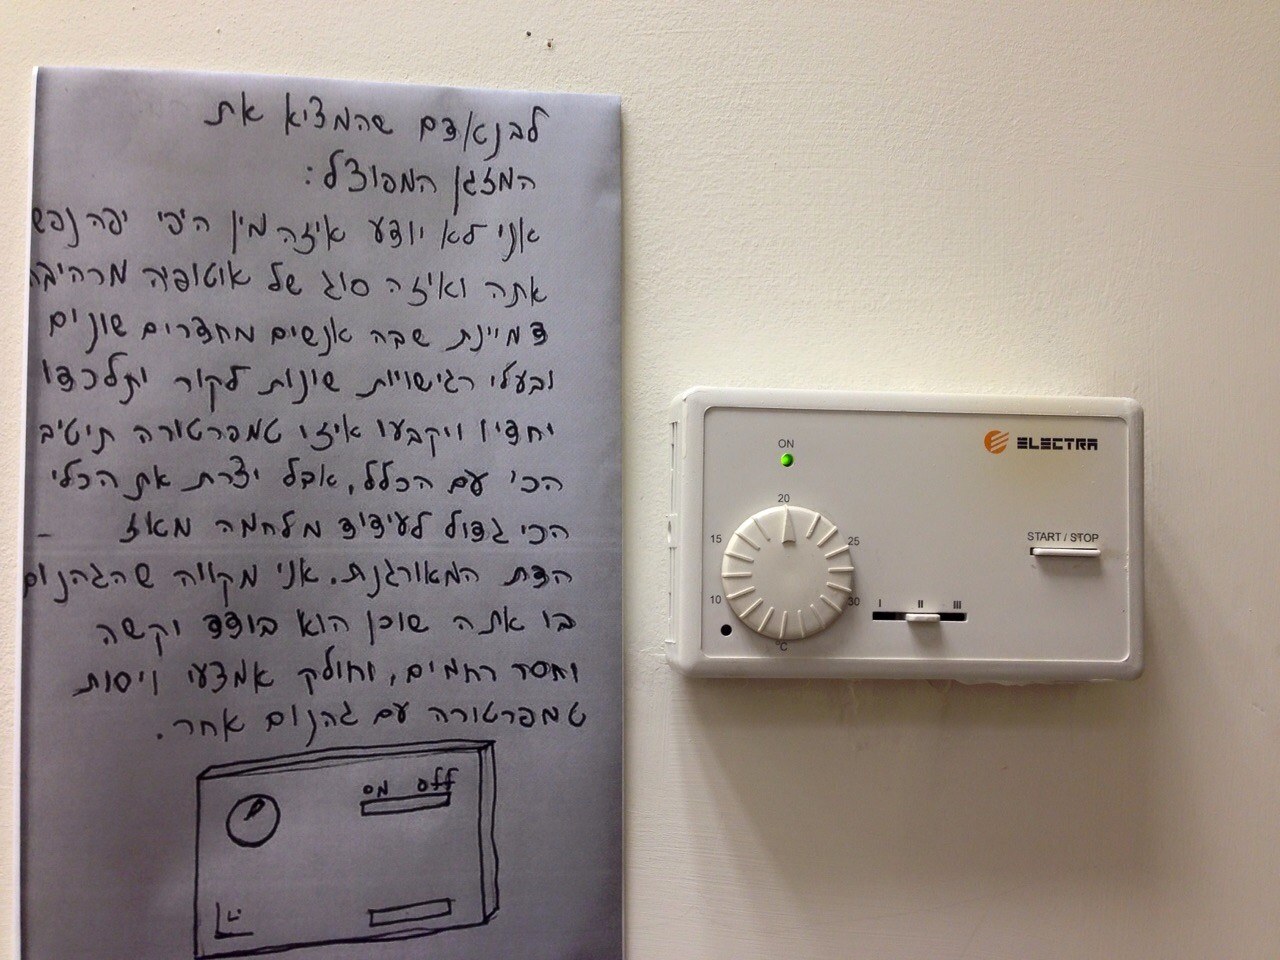 לבנאדם שהמציא את
המזגן המפוצל:
אני לא יודע איזה מין היפי יפה נפש
אתה ואיזה סוג של אוטופיה מרהיבה
דמיינת שבה אנשים מחדרים שונים
ובעלי רגישויות שונות לקור יתלכדו
יחדיו ויקבעו איזו טמפרטורה תיטיב
הכי עם הכלל, אבל יצרת את הכלי
הכי גדול לעידוד מלחמה מאז -
הדת המאורגנת. אני מקווה שהגהנום
בו אתה שוכן הוא בודד וקשה
וחסר רחמים, וחולק אמצעי ויסות
טמפרטורה עם גהנום אחר.
on off
ELECTRA
ON
START / STOP
10 15 20 25 30
°C
I II III